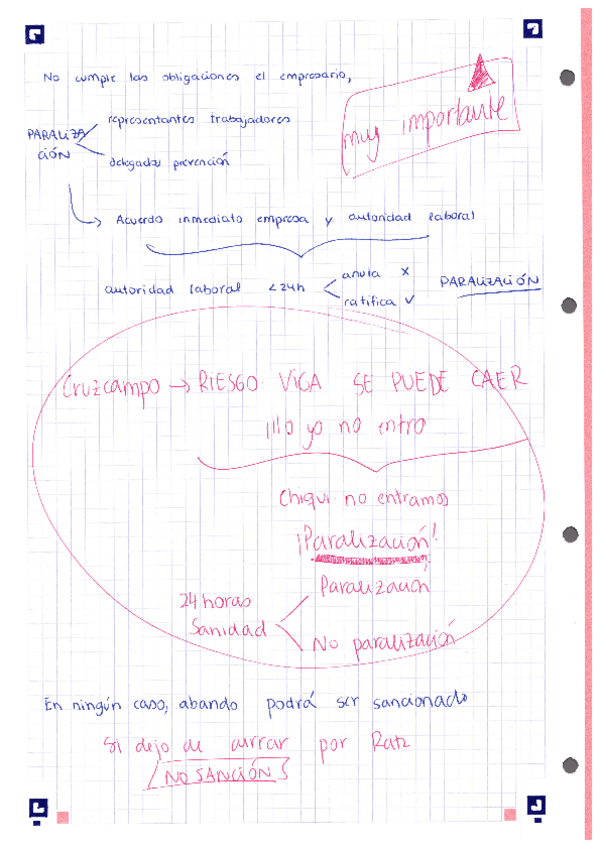 No cumple las obligaciones el empresario,
muy importante
representantes trabajadores
PARALIZA
CIÓN
delegados prevención
Acuerdo inmediato empresa y autoridad laboral
autoridad laboral <24h
anula X
ratifica ✓
PARALIZACIÓN
Cruzcampo → RIESGO VIGA SE PUEDE CAER
illo yo no entro
Chiqui no entramos
¡Paralización!
24 horas
Sanidad
Paralización
No paralización
En ningún caso, abando podrá ser sancionado
Si dejo de currar por
NO SANCIÓN